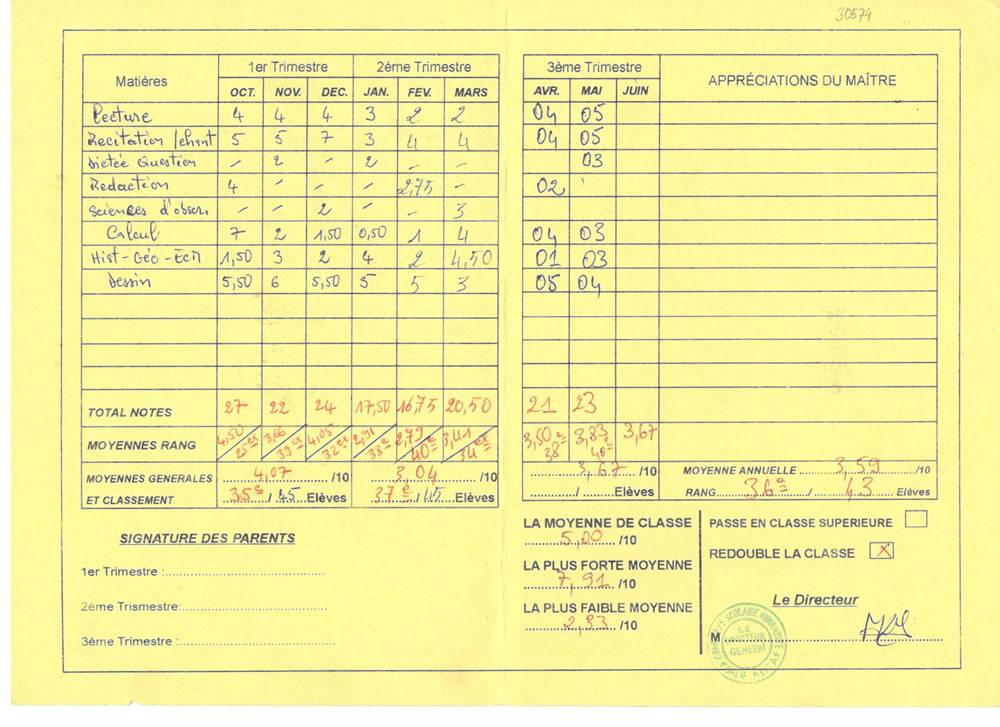 30574
Matières 1er Trimestre 2ème Trimestre 3ème Trimestre APPRÉCIATIONS DU MAÎTRE
OCT. NOV. DEC. JAN. FEV. MARS AVR. MAI JUIN
Lecture 4 4 4 3 2 2 04 05
Recitation /chant 5 5 7 3 4 4 04 05
Dictée Question - 2 - 2 - - 03
Redaction 4 - - - 2,75 - 02 '
Sciences d'obser. - - 2 - - 3
Calcul 7 2 1,50 0,50 1 4 04 03
Hist-Géo-ECM 1,50 3 2 4 2 4,50 01 03
Dessin 5,50 6 5,50 5 5 3 05 04
TOTAL NOTES 27 22 24 17,50 16,75 20,50 21 23
MOYENNES RANG 4,50 25ex 3,66 39e 4,05 32ex 2,91 38e 2,79 40e 3,41 34ex 3,50 38e 3,83 40e 3,67
MOYENNES GENERALES 4,07 /10 3,04 /10 3,67 /10 MOYENNE ANNUELLE 3,59 /10
ET CLASSEMENT 35e / 45 Elèves 37e / 45 Elèves / Elèves RANG 36e / 43 Elèves
SIGNATURE DES PARENTS
1er Trimestre :
2ème Trismestre:
3ème Trimestre :
LA MOYENNE DE CLASSE
5,00 /10
LA PLUS FORTE MOYENNE
7,91 /10
LA PLUS FAIBLE MOYENNE
2,93 /10
PASSE EN CLASSE SUPERIEURE
REDOUBLE LA CLASSE X
Le Directeur
M
LE
DIRECTEUR
GENERAL